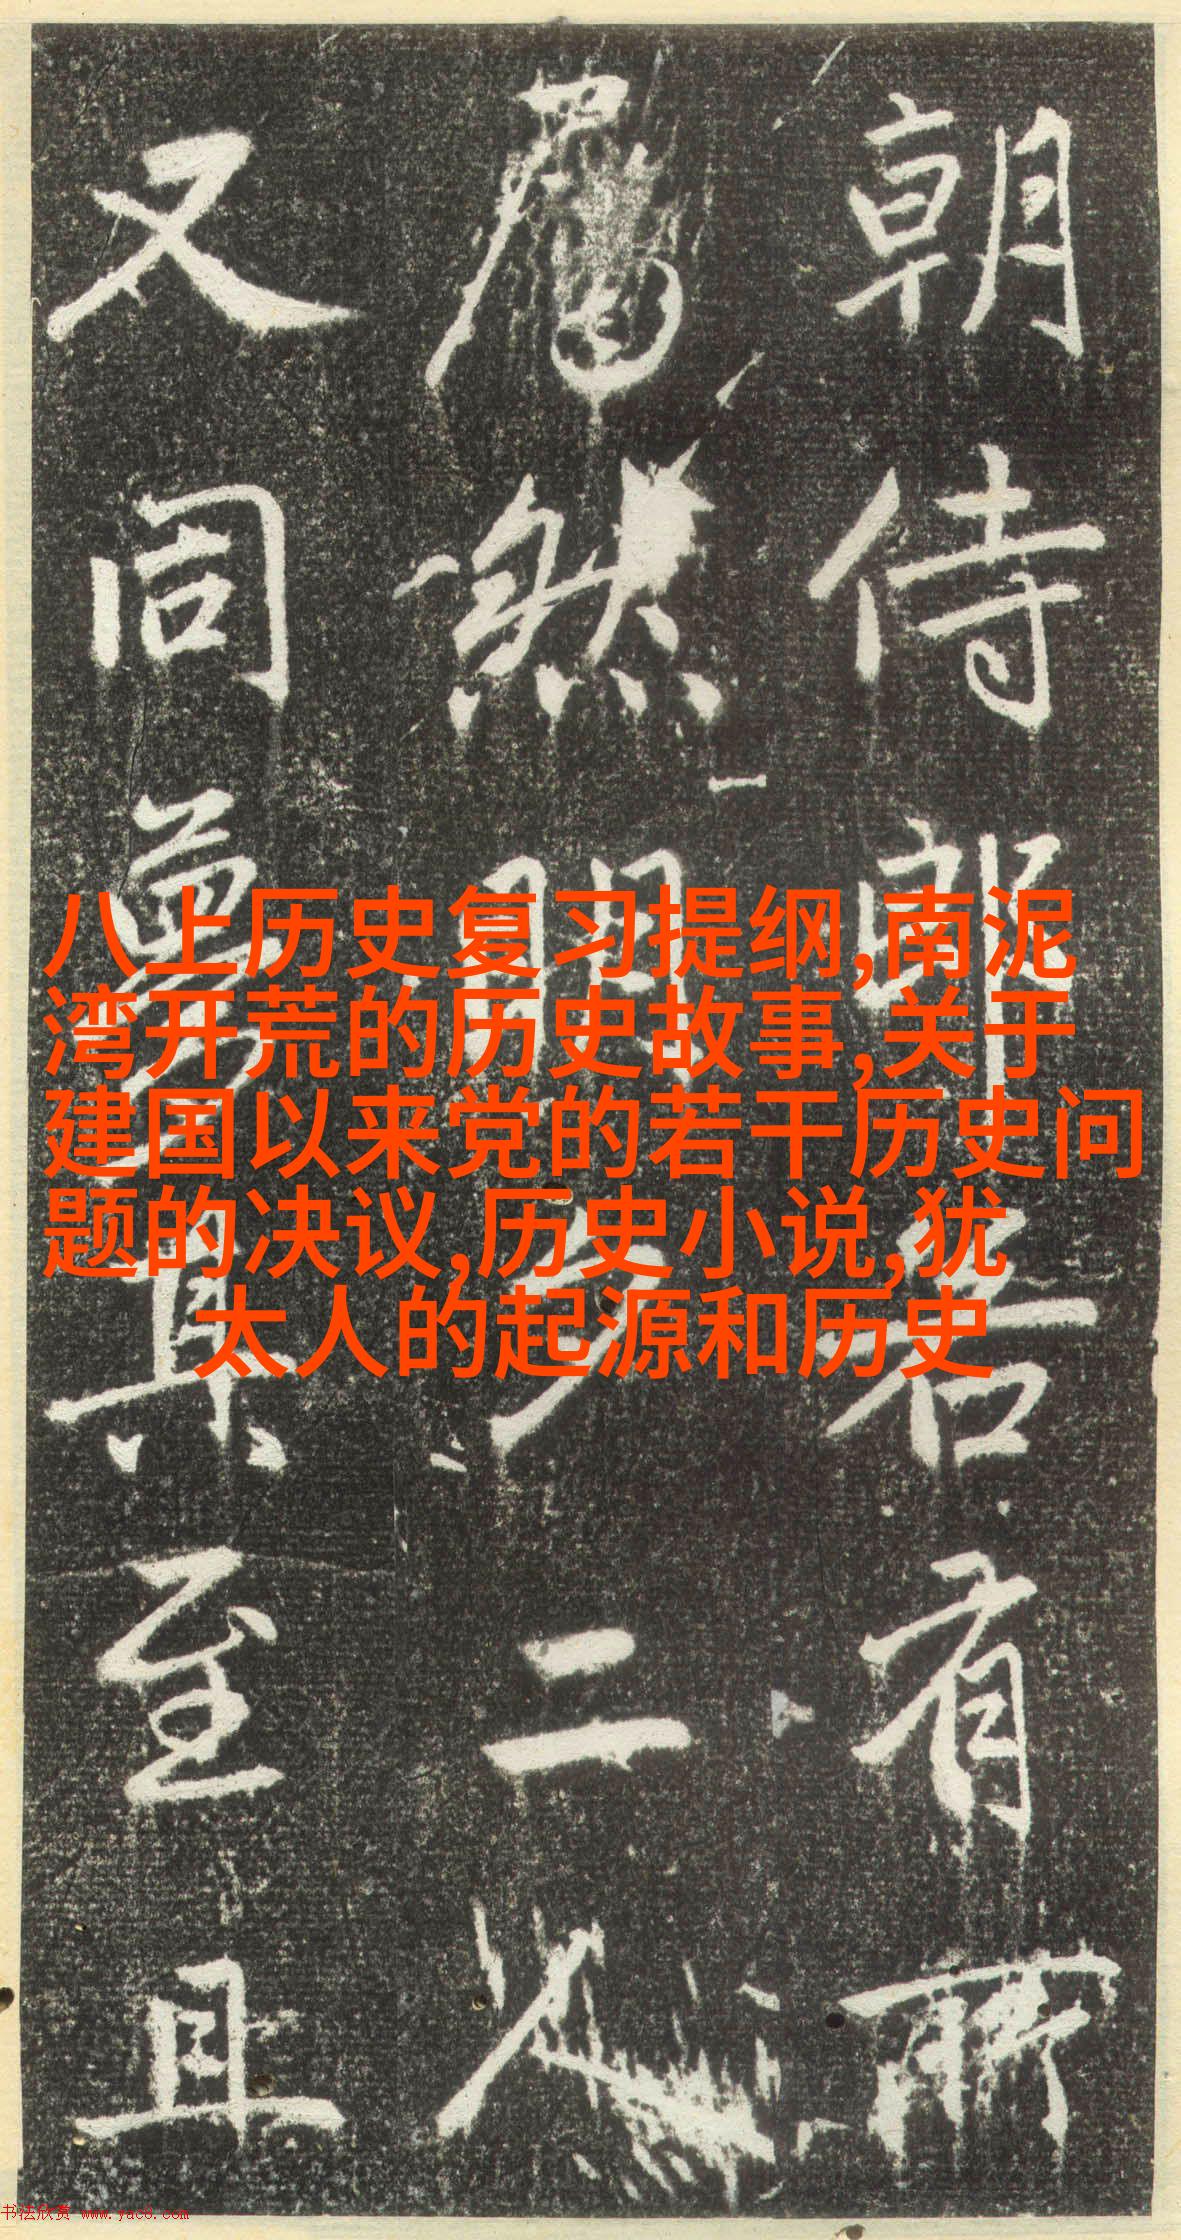 八上历史复习提纲,南泥
湾开荒的历史故事,关于
建国以来党的若干历史问
题的决议,历史小说,犹
太人的起源和历史
朝侍郎有所
然二人
又同其至且
书法欣赏 www.yac8.com